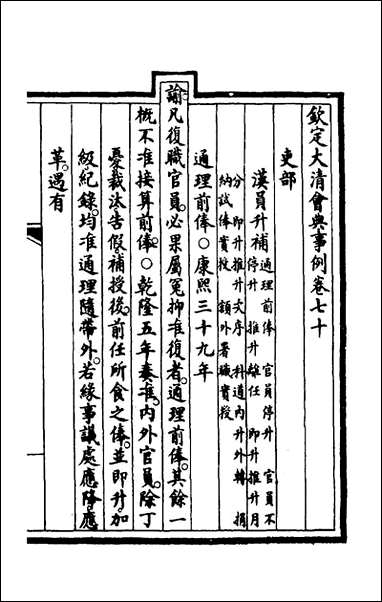 欽定大清會典事例卷七十
吏部
漢員升補
通理前俸　官員停升　官員不
停升　推升離任　即升推升月
分　即升推升次序　科道內升外轉　捐
納試俸實授　額外署職實授
通理前俸○康熙三十九年
諭。凡復職官員。必果屬冤抑准復者。通理前俸。其餘一
概不准接算前俸。○乾隆五年奏准。內外官員。除丁
憂裁汰告假。補授後。前任所食之俸。並即升。加
級。紀錄。均准通理隨帶外。若緣事議處應降。應
革。遇有